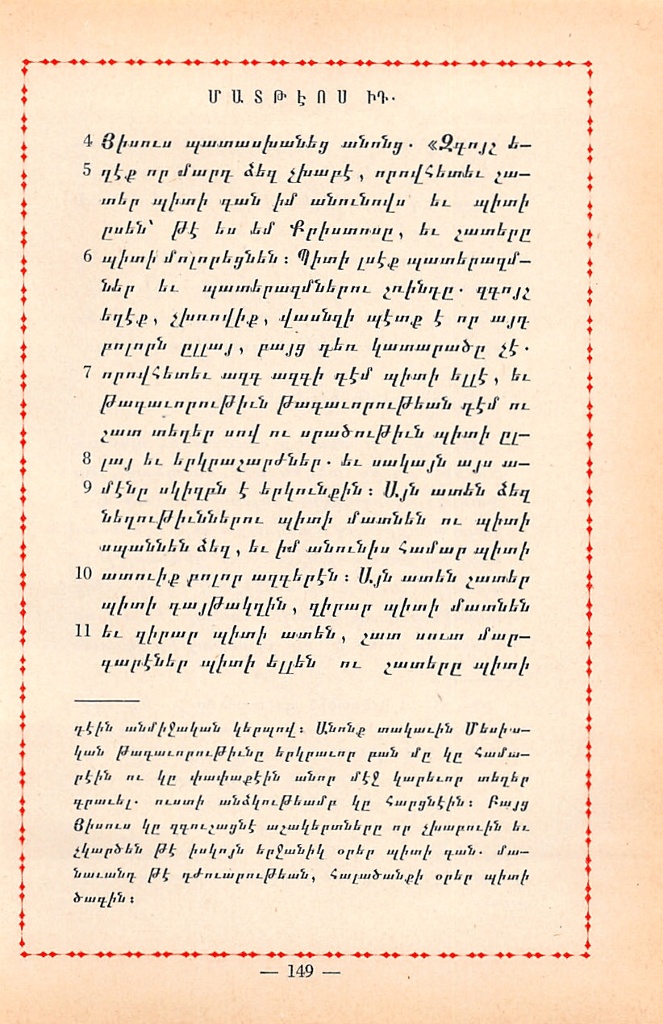 ՄԱՏԹԷՈՍ ԻԴ.
4 Յիսուս պատասխանեց անոնց. «Զգոյշ ե–
5 ղէք որ մարդ ձեզ չխաբէ, որովհետեւ շա–
տեր պիտի գան իմ անունովս եւ պիտի
ըսեն՝ թէ ես եմ Քրիստոսը, եւ շատերը
6 պիտի մոլորեցնեն։ Պիտի լսէք պատերազմ–
ներ եւ պատերազմներու շռինդը. զգոյշ
եղէք, չխռովիք, վասնզի պէտք է որ այդ
բոլորն ըլլայ, բայց դեռ կատարածը չէ.
7 որովհետեւ ազգ ազգի դէմ պիտի ելլէ, եւ
թագաւորութիւն թագաւորութեան դէմ ու
շատ տեղեր սով ու սրածութիւն պիտի ըլ–
8 լայ եւ երկրաշարժներ. եւ սակայն այս ա–
9 մէնը սկիզբն է երկունքին։ Այն ատեն ձեզ
նեղութիւններու պիտի մատնեն ու պիտի
սպաննեն ձեզ, եւ իմ անունիս համար պիտի
10 ատուիք բոլոր ազգերէն։ Այն ատեն շատեր
պիտի գայթակղին, զիրար պիտի մատնեն
11 եւ զիրար պիտի ատեն, շատ սուտ մար–
գարէներ պիտի ելլեն ու շատերը պիտի
դէին անմիջական կերպով։ Անոնք տակաւին Մեսիա–
կան թագաւորութիւնը երկրաւոր բան մը կը համա–
րէին ու կը փափաքէին անոր մէջ կարեւոր տեղեր
գրաւել. ուստի անձկութեամբ կը հարցնէին։ Բայց
Յիսուս կը զգուշացնէ աշակերտները որ չխաբուին եւ
չկարծեն թէ իսկոյն երջանիկ օրեր պիտի գան. մա–
նաւանդ թէ դժուարութեան, հալածանքի օրեր պիտի
ծագին։
— 149 —